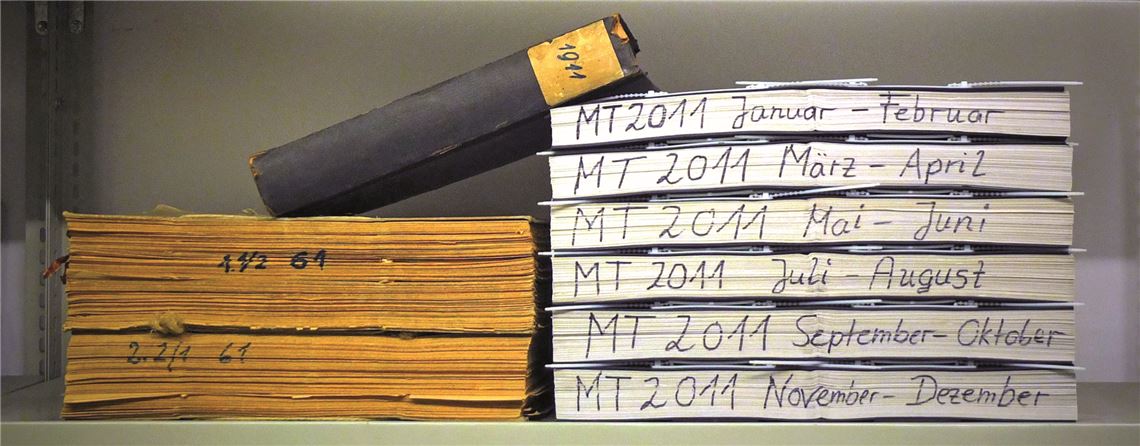 1911
MT 2011 Januar - Februar
MT 2011 März - April
MT 2011 Mai - Juni
MT 2011 Juli - August
MT 2011 September - Oktober
MT 2011 November - Dezember
1. 1/2 61
2. 2/1 61